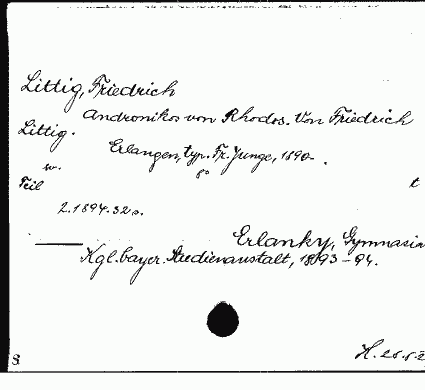 Littig, Friedrich
Andronikos von Rhodos. Von Friedrich
Littig.
Erlangen, typ. Fr. Junge, 1890-.
8°
w.
Teil
t
2. 1894. 32 s.
Erlanky, Gymnasiu
Kgl. bayer. Studienanstalt, 1893-94.
S.
H. 26.5.2